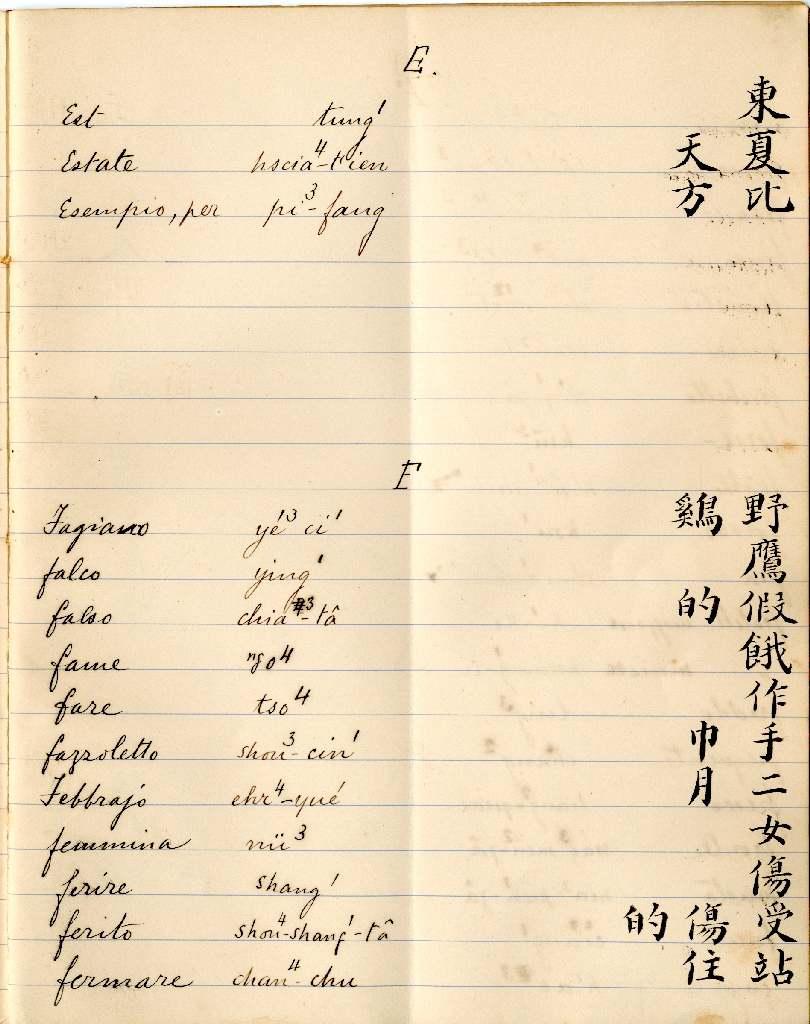 E.
Est tung¹ 東
Estate hscia⁴-t'ien 夏天
Esempio, per pi³-fang 比方
F
Fagiano yé³ ci¹ 野鷄
falco ying¹ 鷹
falso chia³-tâ 假的
fame ngo⁴ 餓
fare tso⁴ 作
fazzoletto shou³-cin¹ 手巾
Febbrajo ehr⁴-yué 二月
femmina nü³ 女
ferire shang¹ 傷
ferito shou⁴-shang¹-tâ 受傷的
fermare chan⁴-chu 站住